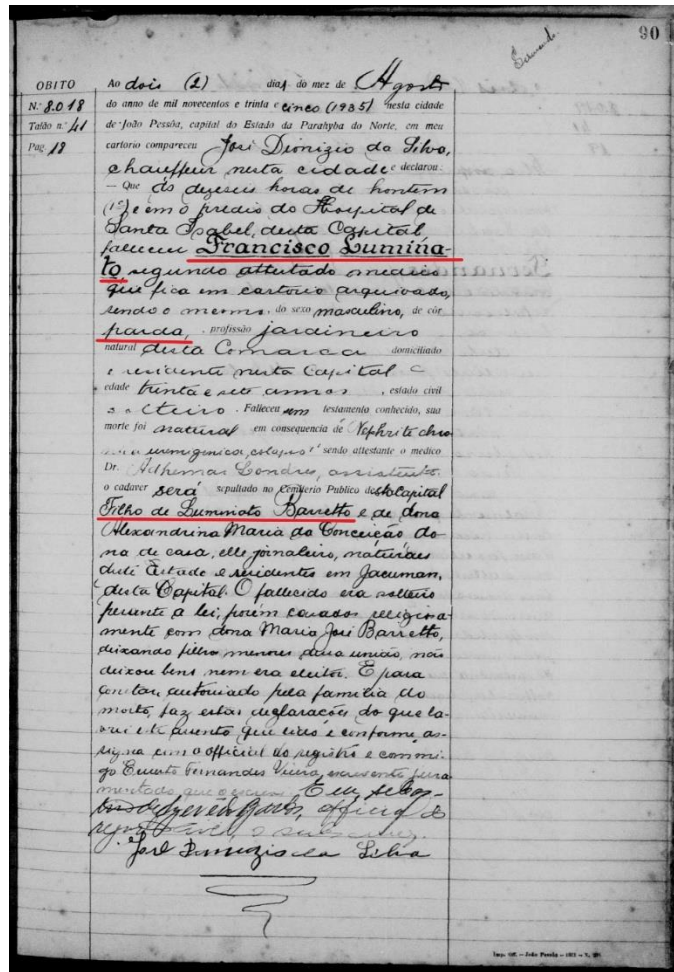 90
Fernando
OBITO
N.º 8.018
Talão n.º 41
Pag. 18
Ao dois (2) dias do mez de Agosto
do anno de mil novecentos e trinta e cinco (1935) nesta cidade
de João Pessôa, capital do Estado da Parahyba do Norte, em meu
cartorio compareceu José Dionizio da Silva,
chauffeur nesta cidade e declarou:
— Que ás dezeseis horas de hontem
(1º) e em o predio do Hospital de
Santa Isabel, desta Capital,
falleceu Francisco Lumina-
to segundo attestado medico
que fica em cartorio archivado,
sendo o mesmo, do sexo masculino, de côr
parda, profissão jardineiro
natural desta Comarca domiciliado
e residente nesta Capital e
edade trinta e sete annos, estado civil
solteiro. Falleceu sem testamento conhecido, sua
morte foi natural em consequencia de Nephrite chro-
nica uremigenica, colapso" sendo attestante o medico
Dr. Adhemar Londres, assistente.
o cadaver será sepultado no Cemiterio Publico desta Capital
Filho de Luminato Barretto e de dona
Alexandrina Maria da Conceição do-
na de casa, elle jornaleiro, naturaes
deste Estado e residentes em Jacuman,
desta Capital. O fallecido era solteiro
perante a lei, porém casados religiosa-
mente com dona Maria José Barretto,
deixando filhos menores dessa união, não
deixou bens nem era eleitor. E para
constar, autorisado pela familia do
morto, faz estas declarações do que la-
vrei este assento que lido e conforme, as-
signa com o official do registro e commi-
go Eunato Fernandes Vieira, escrevente jura-
mentado que o escrevi. Eu, Sebas-
tião de Azevedo Bastos, official do
registro civil, o subscrevi.
José Dionizio da Silva
Imp. Off. — João Pessôa